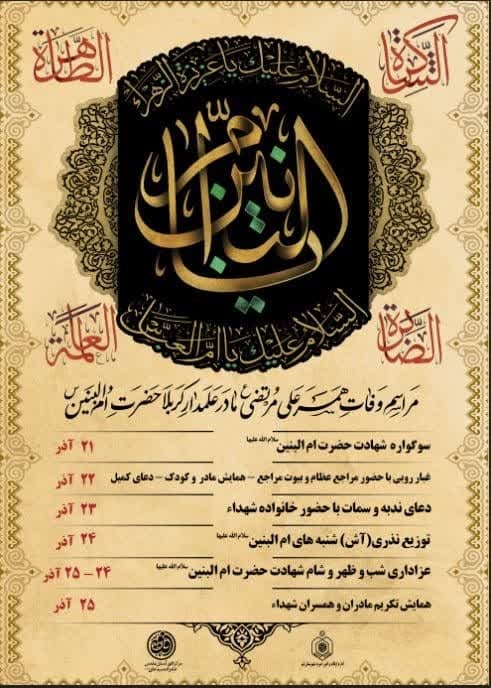 الشاکرة
الطاهرة
السلام علیک یا عزیزة الزهراء
ام البنین
السلام علیک یا ام العباس
الصابرة
العالمة
مراسم وفات همسر علی مرتضی ع مادر علمدار کربلا حضرت ام البنین س
سوگواره شهادت حضرت ام البنین سلام الله علیها ۲۱ آذر
غبار روبی با حضور مراجع عظام و بیوت مراجع – همایش مادر و کودک – دعای کمیل ۲۲ آذر
دعای ندبه و سمات با حضور خانواده شهداء ۲۳ آذر
توزیع نذری(آش) شنبه های ام البنین سلام الله علیها ۲۴ آذر
عزاداری شب و ظهر و شام شهادت حضرت ام البنین سلام الله علیها ۲۴ – ۲۵ آذر
همایش تکریم مادران و همسران شهداء ۲۵ آذر